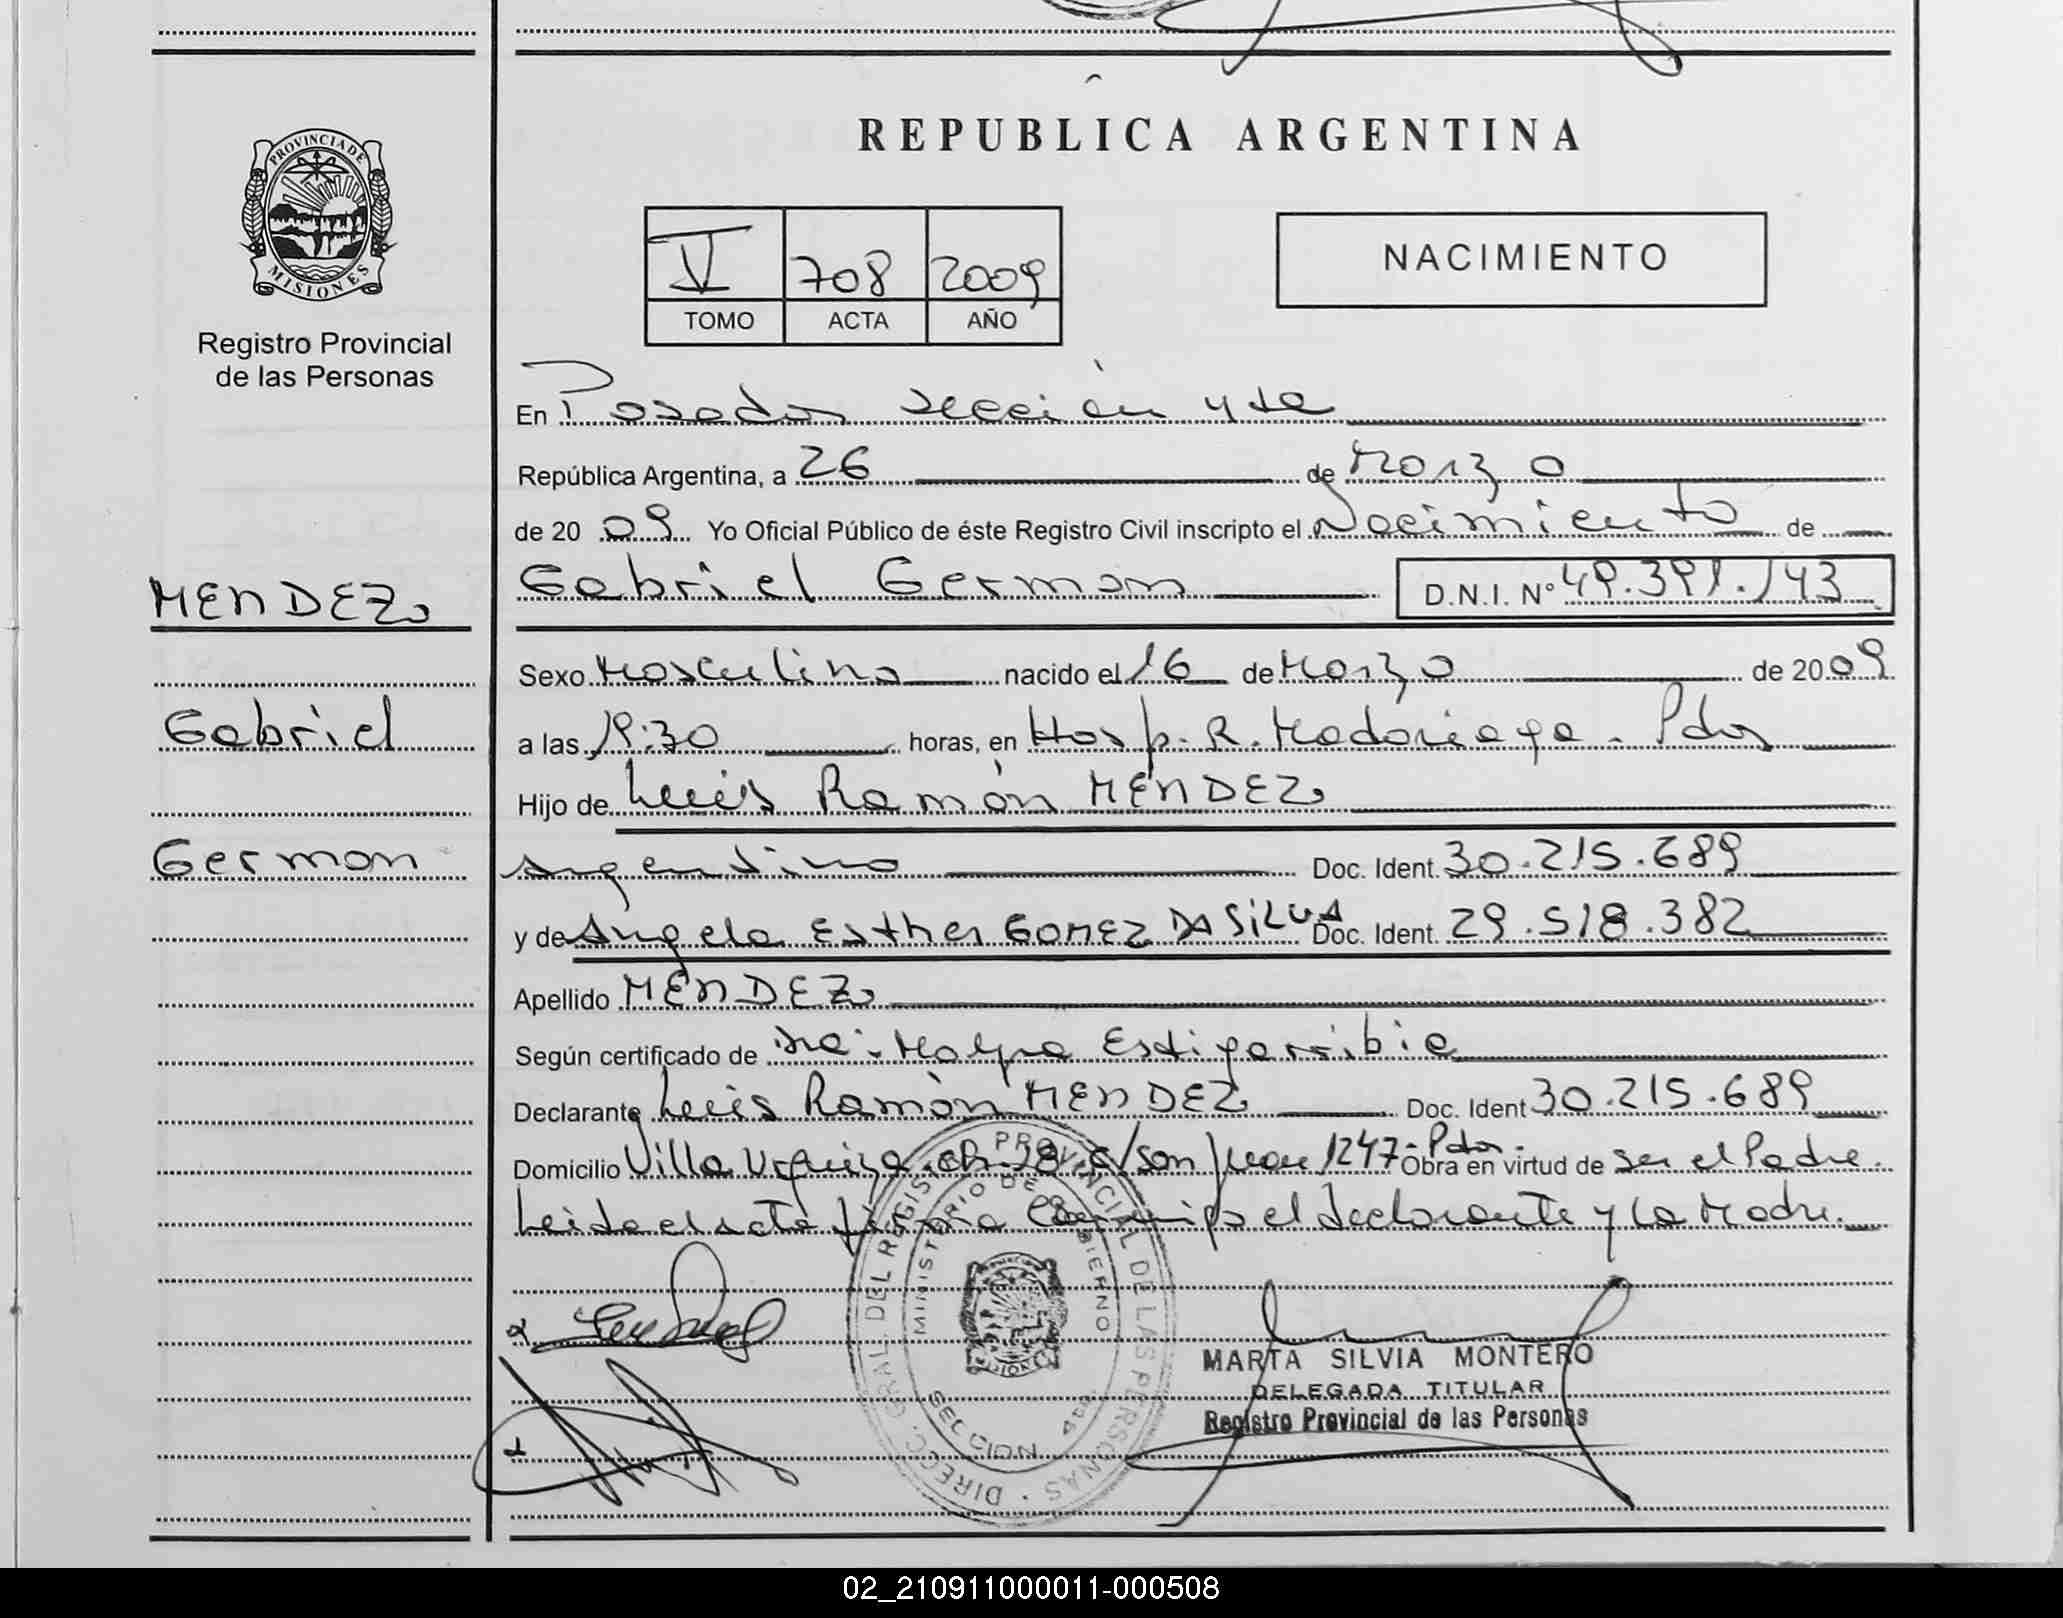 REPUBLICA ARGENTINA
PROVINCIA DE MISIONES
Registro Provincial
de las Personas
V 708 2009
TOMO ACTA AÑO
NACIMIENTO
En Posadas sección 4ta
República Argentina, a 26 de Marzo
de 2009 Yo Oficial Público de éste Registro Civil inscripto el Nacimiento de
MENDEZ
Gabriel German D.N.I. Nº 49.391.143
Sexo Masculino nacido el 16 de Marzo de 2009
Gabriel
a las 19:30 horas, en Hosp. R. Madariaga - Pdas
Hijo de Luis Ramón MENDEZ
German
Argentino Doc. Ident. 30.215.689
y de Angela Esther GOMEZ DA SILVA Doc. Ident. 29.518.382
Apellido MENDEZ
Según certificado de Mayra Estigarribia
Declarante Luis Ramón MENDEZ Doc. Ident 30.215.689
Domicilio Villa Urquiza ch. 38 c/ San Juan 1247 - Pdas. Obra en virtud de ser el Padre.
Leida el acta firma conmigo el declarante y la Madre.
DIRECC. GRAL. DEL REGISTRO PROVINCIAL DE LAS PERSONAS
MINISTERIO DE GOBIERNO
SECCION 4ta.
MARTA SILVIA MONTERO
DELEGADA TITULAR
Registro Provincial de las Personas
02_210911000011-000508